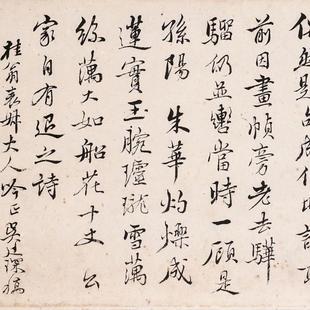 前因畫幀旁老去驊
騮仍並轡當時一顧是
孫陽 朱華灼爍成
蓮實玉腕瓏雪藕
絲藕大如船花十丈公
家自有退之詩
桂翁表姊大人吟正吳廷琛稿